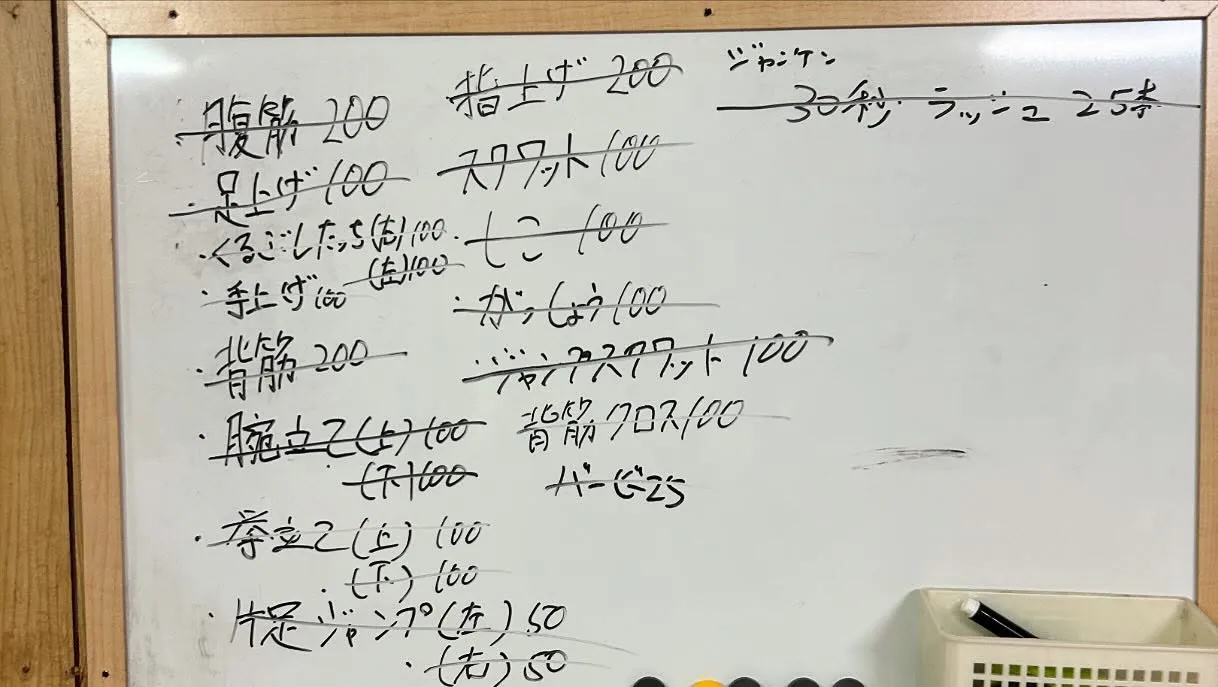 ・腹筋 200
・足上げ 100
・くるこ゛したっち(右)100
(左)100
・手上げ 100
・背筋 200
・腕立て(上)100
(下)100
・拳立て(上)100
・(下)100
・片足ジャンプ(左)50
・(右)50
指上げ 200
スクワット 100
・しこ 100
・がっしょう 100
ジャンプスクワット 100
背筋クロス 100
バービー 25
ジャンケン
30秒 ラッシュ 25本